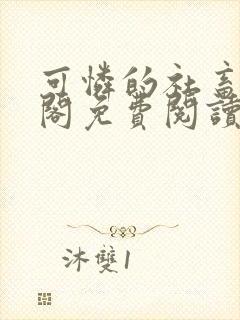 可憐的社畜
閣免費閱讀
沐雙1